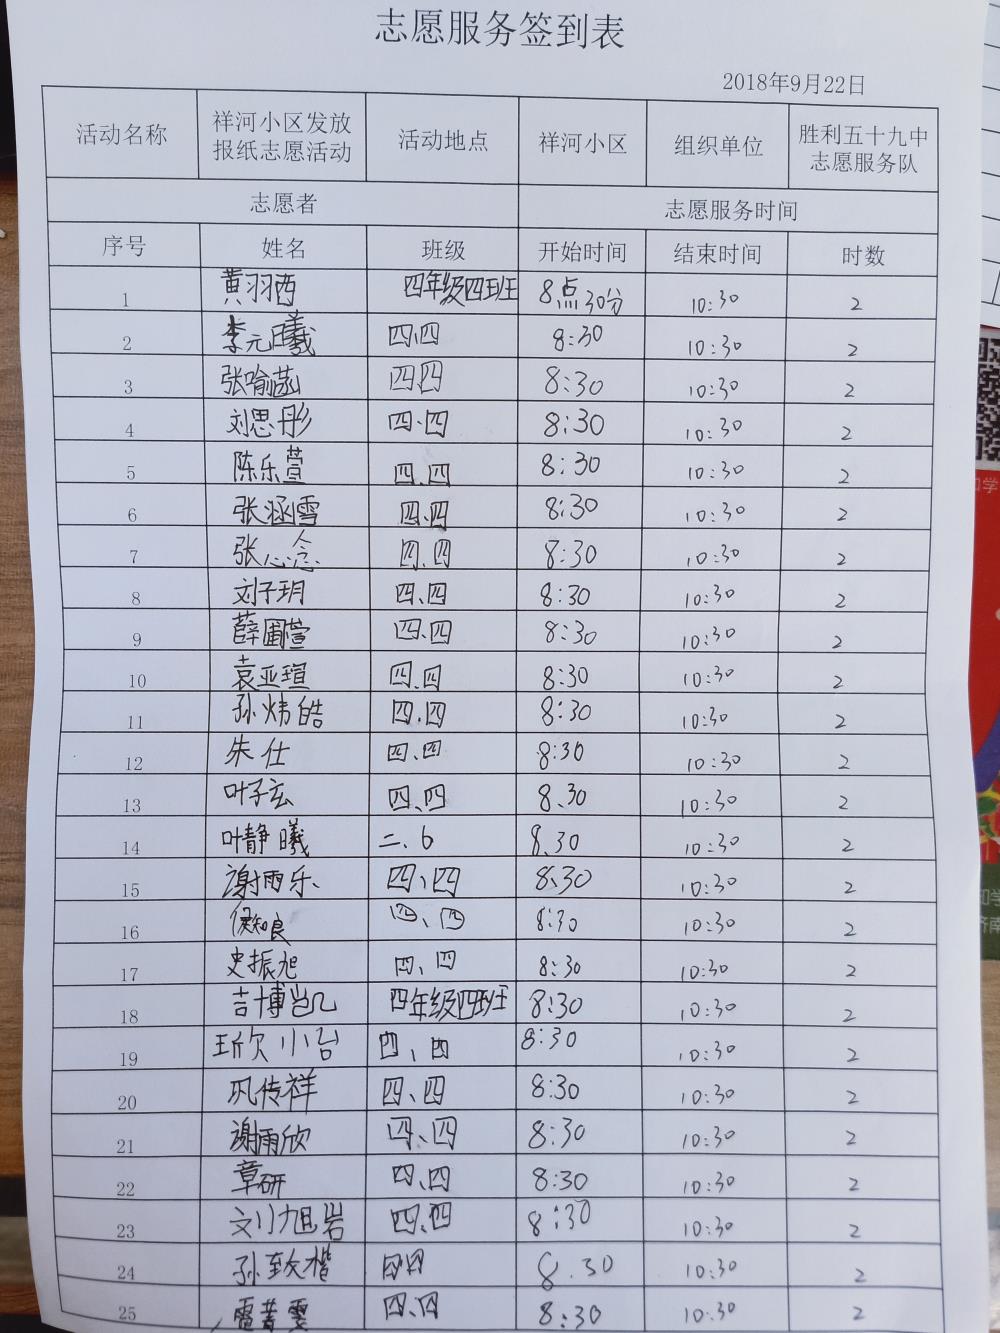 志愿服务签到表
2018年9月22日
活动名称 祥河小区发放报纸志愿活动 活动地点 祥河小区 组织单位 胜利五十九中志愿服务队
志愿者 志愿服务时间
序号 姓名 班级 开始时间 结束时间 时数
1 黄羽西 四年级四班 8点30分 10:30 2
2 李元曦 四、四 8:30 10:30 2
3 张喻菡 四四 8:30 10:30 2
4 刘思彤 四·四 8:30 10:30 2
5 陈乐萱 四、四 8:30 10:30 2
6 张涵雪 四、四 8:30 10:30 2
7 张心念 四、四 8:30 10:30 2
8 刘子玥 四、四 8:30 10:30 2
9 薛圃萱 四、四 8:30 10:30 2
10 袁亚瑄 四、四 8:30 10:30 2
11 孙炜皓 四、四 8:30 10:30 2
12 朱仕 四、四 8:30 10:30 2
13 叶子玄 四、四 8.30 10:30 2
14 叶静曦 二、6 8.30 10:30 2
15 谢雨乐 四、四 8:30 10:30 2
16 侯知良 四、四 8:30 10:30 2
17 史振旭 四、四 8:30 10:30 2
18 吉博凯 四年级四班 8:30 10:30 2
19 小台 四、四 8:30 10:30 2
20 巩传祥 四、四 8:30 10:30 2
21 谢雨欣 四、四 8:30 10:30 2
22 章研 四、四 8:30 10:30 2
23 刘旭岩 四、四 8:30 10:30 2
24 孙致楷 四四 8.30 10:30 2
25 雯 四、四 8:30 10:30 2